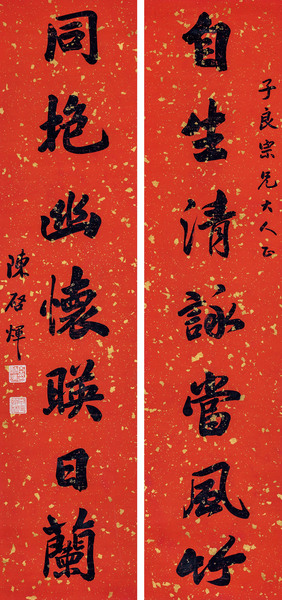 子良宗兄大人正
自生清詠當風竹
同抱幽懷暎日蘭
陳啓輝